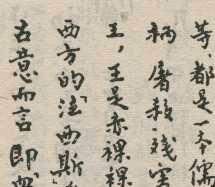 等都是一本儒
柄屠殺殘害
王，王是赤裸裸
西方的「法西斯
古意而言即